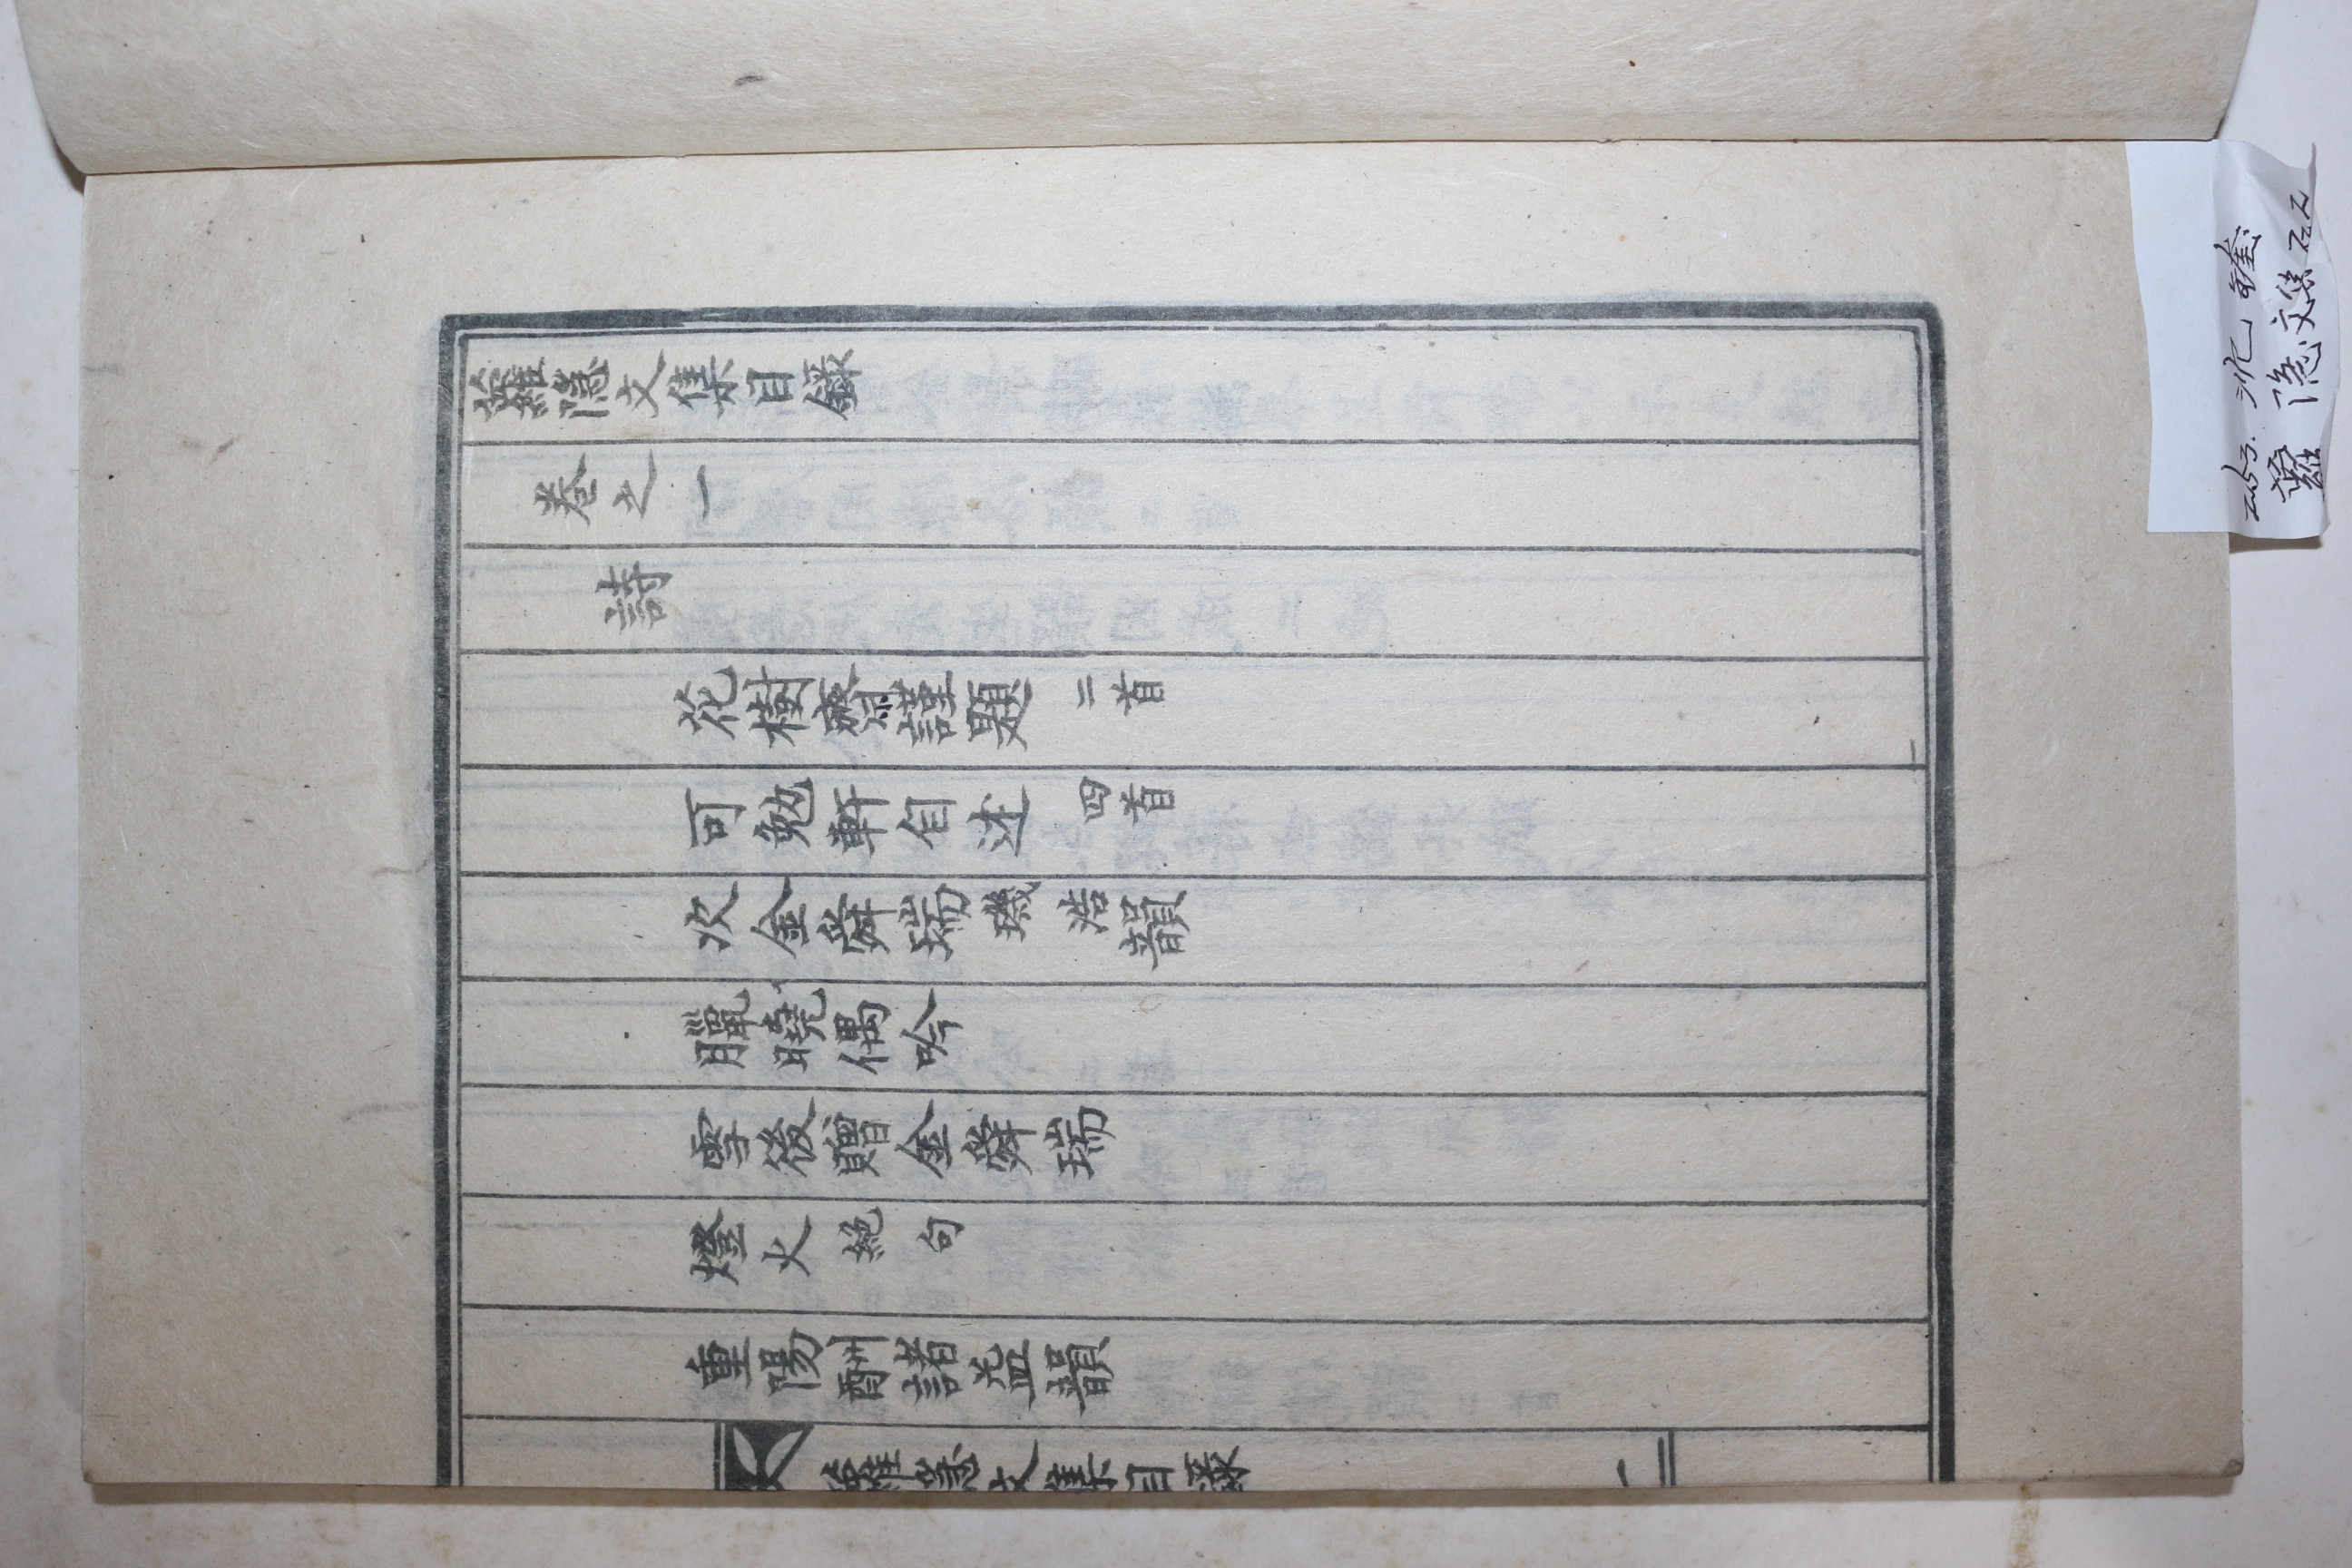 蘿隱文集目錄
卷之一
詩
花樹齋謹題 二首
可勉軒自述 四首
次金舜瑞璣浩韻
臘曉偶吟
雪後贈金舜瑞
燈火 絕句
重陽酬諸益韻
蘿隱文集目錄
蘿隱文集